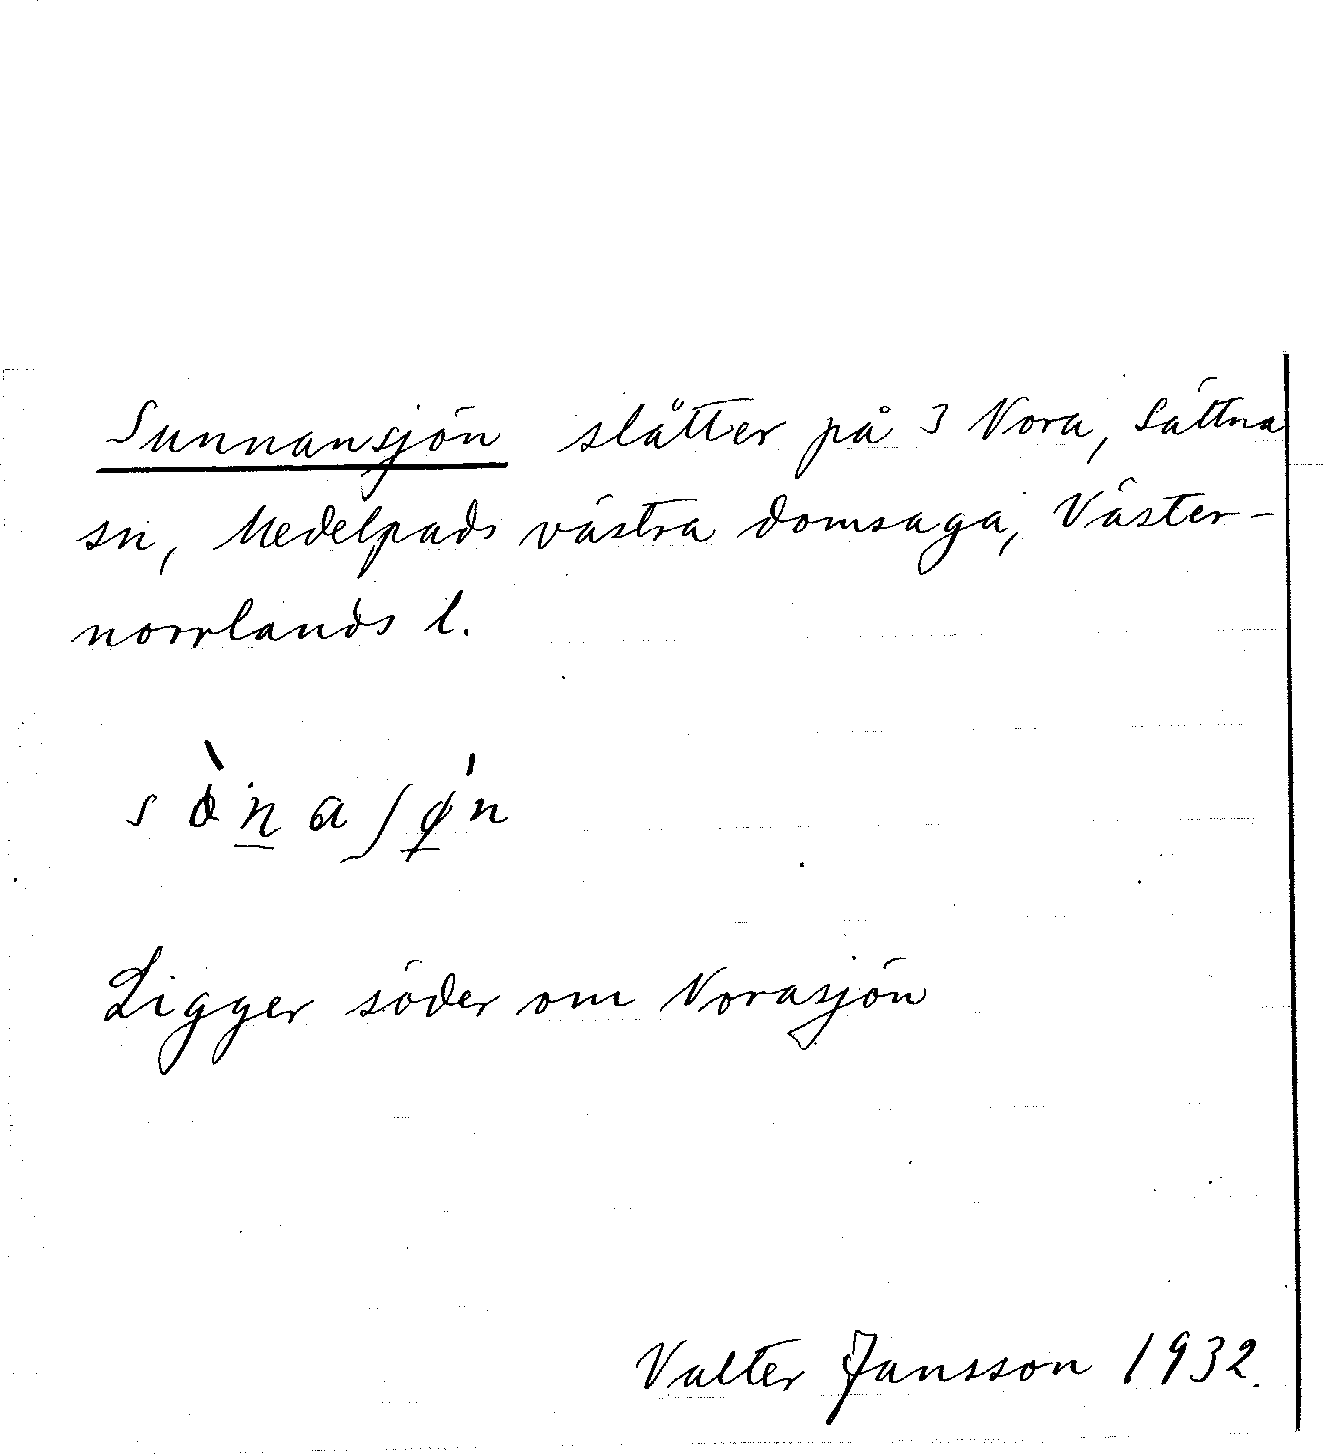 Sunnansjön slåtter på 3 Nora, Sättna
sn, Medelpads västra domsaga, Väster-
norrlands l.
Ligger söder om Norasjön
Valter Jansson 1932.